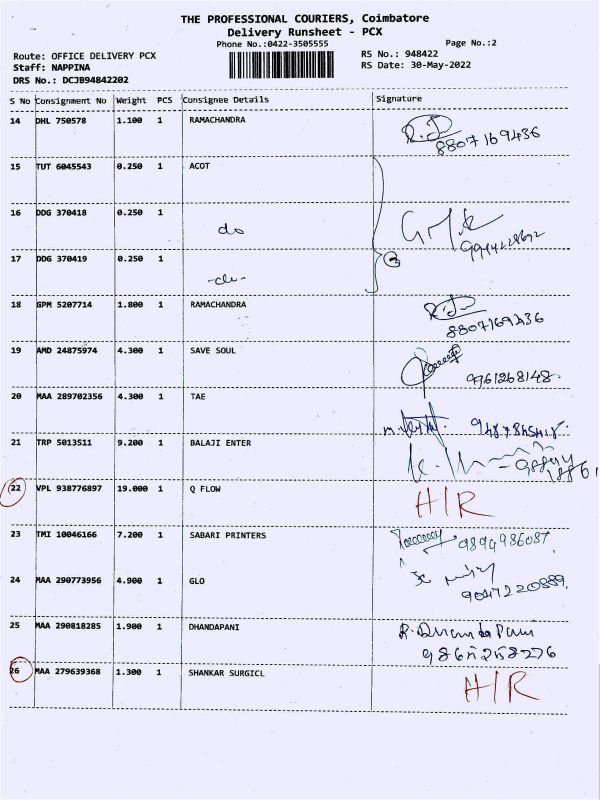 THE PROFESSIONAL COURIERS, Coimbatore
Delivery Runsheet - PCX
Phone No.:0422-3505555
Page No.:2
Route: OFFICE DELIVERY PCX
RS No.: 948422
Staff: NAPPINA
RS Date: 30-May-2022
DRS No.: DCJB94842202
S No Consignment No Weight PCS Consignee Details Signature
14 DHL 750578 1.100 1 RAMACHANDRA
8807169436
15 TUT 6045543 0.250 1 ACOT
16 DDG 370418 0.250 1 do
17 DDG 370419 0.250 1 -do-
3
18 GPM 5207714 1.800 1 RAMACHANDRA
8807169436
19 AMD 24875974 4.300 1 SAVE SOUL
9761268148.
20 MAA 289702356 4.300 1 TAE
21 TRP 5013511 9.200 1 BALAJI ENTER
22 VPL 938776897 19.000 1 Q FLOW H/R
23 TMI 10046166 7.200 1 SABARI PRINTERS 9894986087
24 MAA 290773956 4.900 1 GLO
9047220889.
25 MAA 290818285 1.900 1 DHANDAPANI R. Dhandapani
26 MAA 279639368 1.300 1 SHANKAR SURGICL H/R